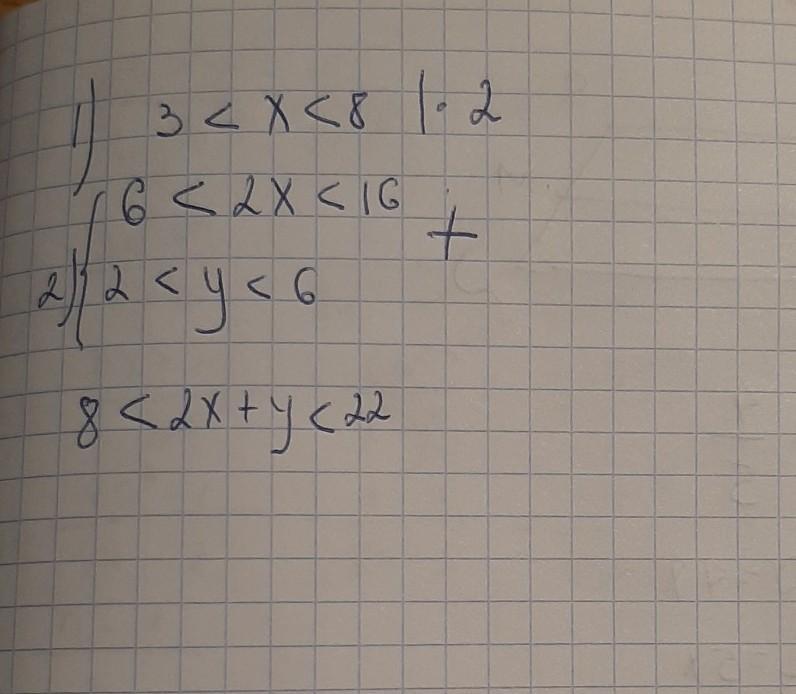 1) 3 < x < 8 | · 2
6 < 2x < 16
+
2) 2 < y < 6
8 < 2x + y < 22